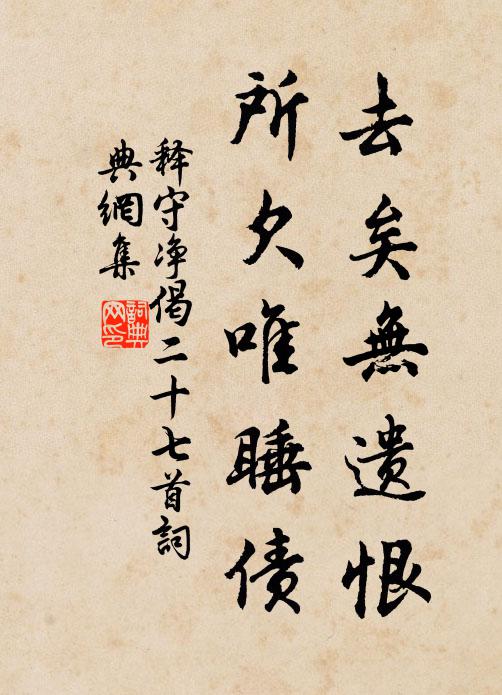 去矣無遗恨
所欠唯睡债
釋守净偈二十七首詞
典網集
詞典
网印